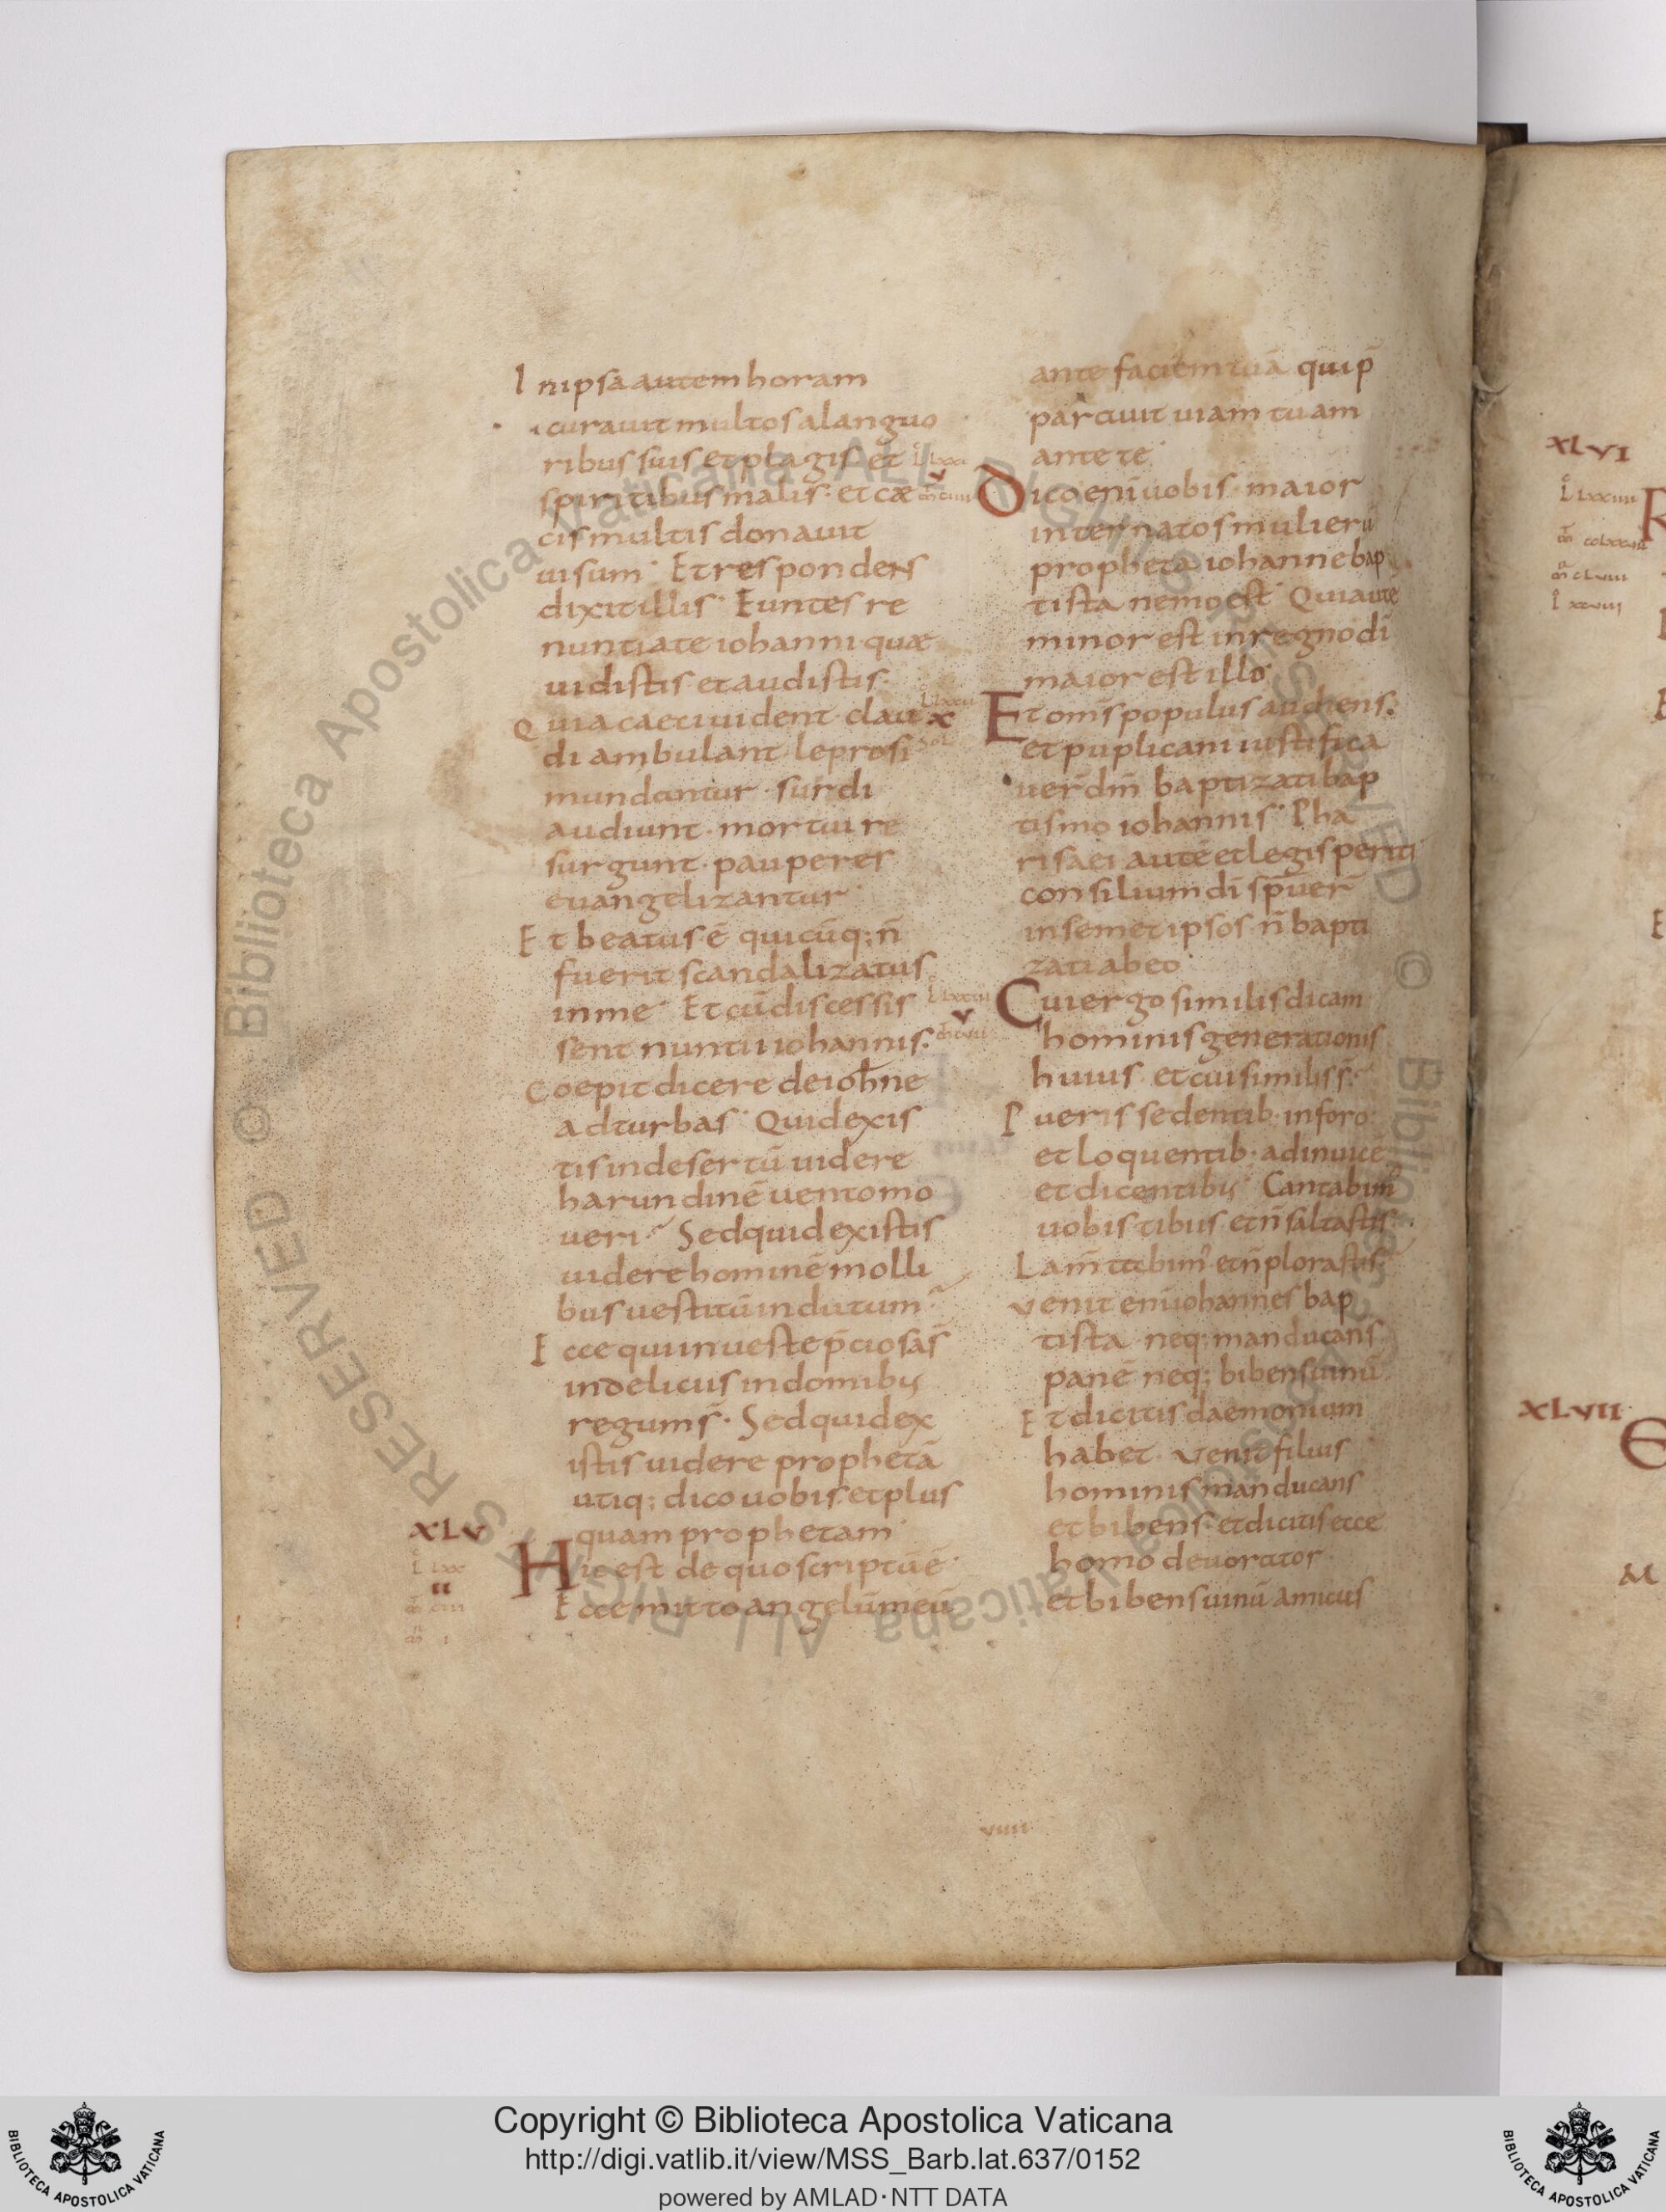 In ipsa autem horam
curauit multos alanguo
ribus suis et plagis et
spiritibus malis· et cae
cis multis donauit
uisum· Et respondens
dixit illis· Euntes re
nuntiate iohanni· quae
uidistis et audistis·
Quia caeci uident· clau
di ambulant· leprosi
mundantur· surdi
audiunt· mortui re
surgunt· pauperes
euangelizantur·
Et beatus ē quicūq; n̄
fuerit scandalizatus
in me· Et cū discessis
sent nuntii iohannis·
Coepit dicere de ioh̄ne
ad turbas· Quid exis
tis in desertū uidere
harundinē uento mo
ueri· Sed quid existis
uidere hominē molli
bus uestitū indutum·
Ecce qui in ueste p̄ciosa s̄
in delicus in domibus
regum s̄· Sed quid ex
istis uidere prophetā
utiq; dico uobis· et plus
XLV
quam prophetam·
Hic est de quo scriptū ē·
Ecce mitto angelū meū
ante faciem tuā qui p̄
parauit uiam tuam
ante te·
Dico enī uobis· maior
inter natos mulierū
propheta iohanne bap
tista nemo est· Qui autē
minor est in regno dī
maior est illo·
Et om̄s populus audiens·
et puplicani iustifica
uer̄ dm̄ baptizati bap
tismo iohannis· Pha
risaei autē et legis periti
consilium dī spreuer̄
in semetipsos· n̄ bapti
zati ab eo·
Cui ergo similis dicam
hominis generationis
huius· et cui similis s̄·
Pueris sedentib· in foro·
et loquentib· ad inuicē
et dicentibus· Cantabim'
uobis tibus· et n̄ saltastis·
Lam̄tabim' et n̄ plorastis·
Venit enī iohannes bap
tista neq; manducans
panē neq; bibens uinū
Et dicitis daemonium
habet· Venit filius
hominis manducans
et bibens· et dicitis ecce
homo deuorator
et bibens uinū amicus
VIIII
XLVI
XLVII
Copyright © Biblioteca Apostolica Vaticana
http://digi.vatlib.it/view/MSS_Barb.lat.637/0152
powered by AMLAD·NTT DATA
BIBLIOTECA APOSTOLICA VATICANA
BIBLIOTECA APOSTOLICA VATICANA